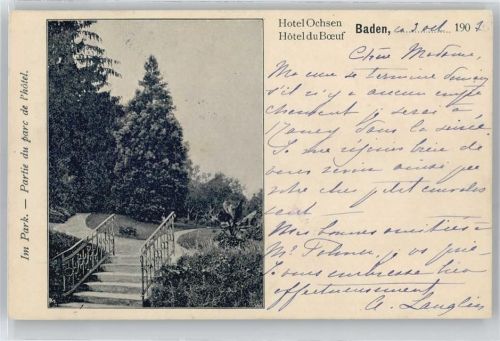 Im Park. — Partie du parc de l'hôtel.
Hotel Ochsen
Hôtel du Bœuf
Baden, le 3 oct. 1907
Chère Madame,
Ma cure se termine
s'il n'y a aucun
chement je serai à
Nancy dans la soirée.
Je me réjouis bien de
vous revoir ainsi que
votre cher petit
sant
Mes bonnes amitiés à
Mr je vous prie
Je vous embrasse bien
affectueusement